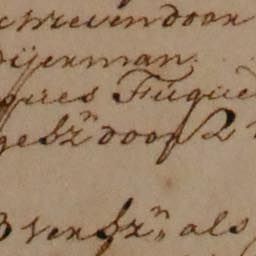 chreven door
dijerman
ques Fuque
gesz.n door 2
3 versz.n als